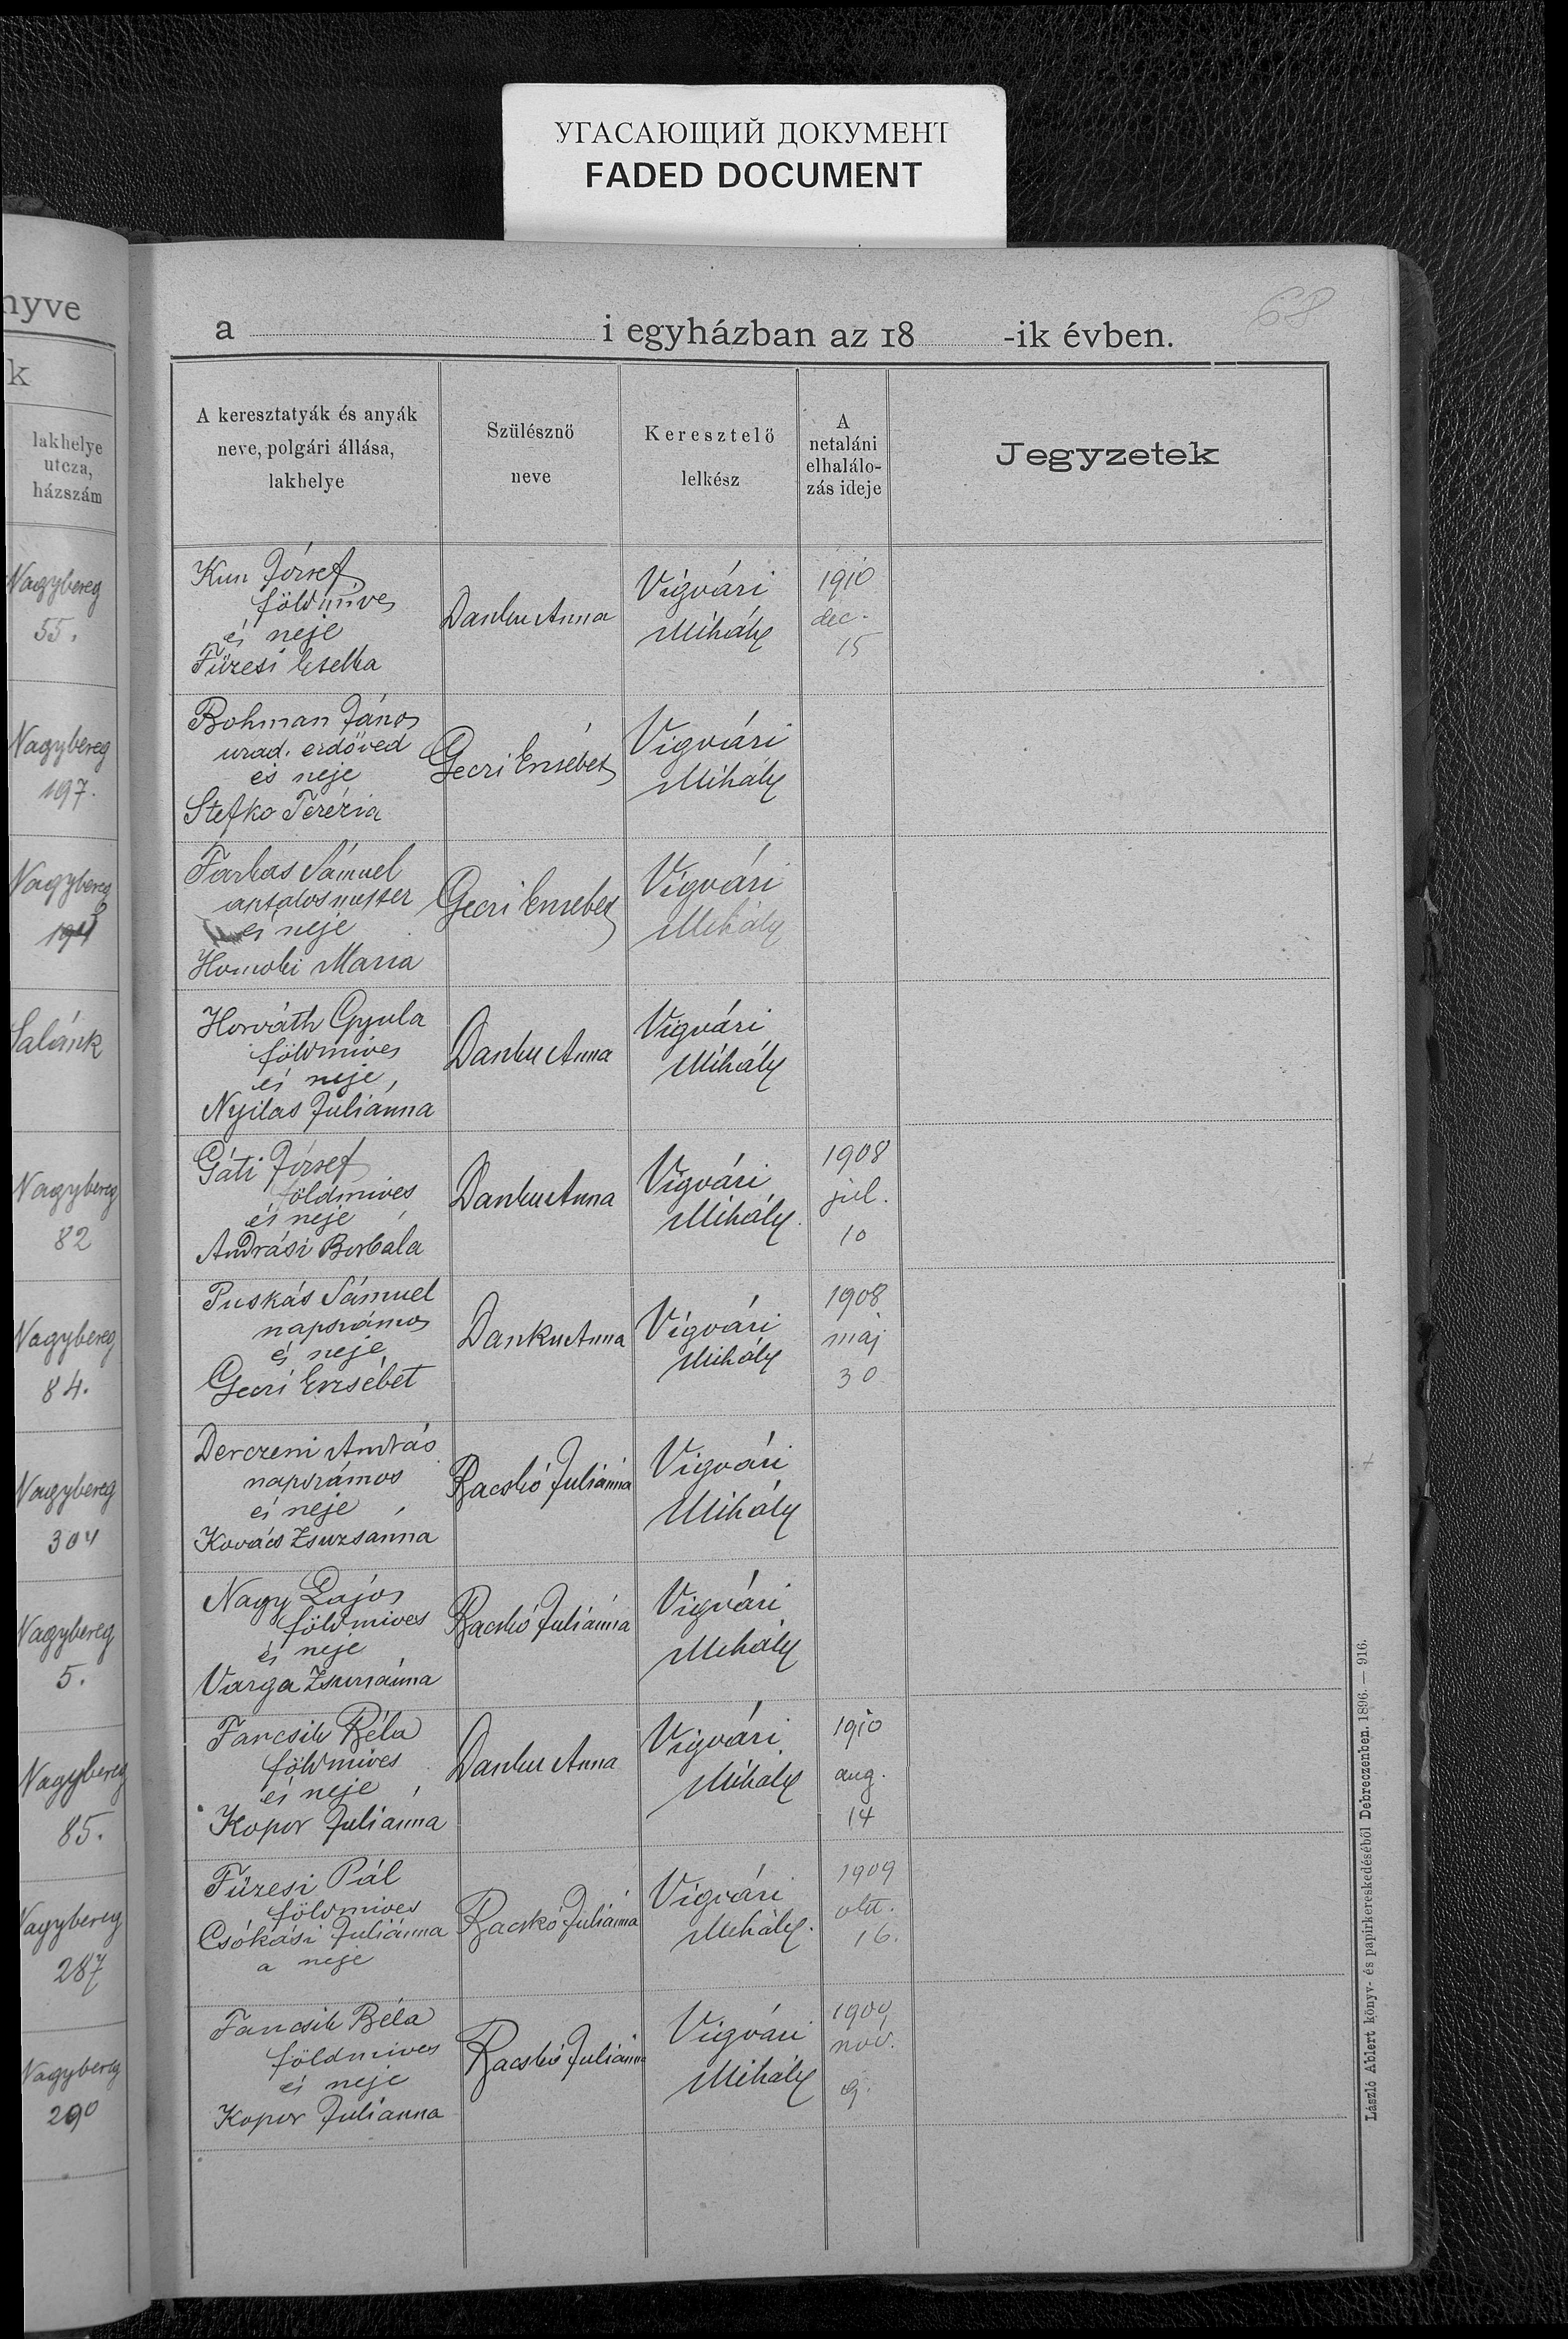 УГАСАЮЩИЙ ДОКУМЕНТ
FADED DOCUMENT
nyve
k
lakhelye
utcza,
házszám
Nagybereg
55.
Nagybereg
197.
Nagybereg
Salánk
Nagybereg
82
Nagybereg
84.
Nagybereg
304
Nagybereg
5.
Nagybereg
85.
Nagybereg
287
Nagybereg
290
68
a i egyházban az 18 -ik évben.
A keresztatyák és anyák
neve, polgári állása,
lakhelye
Szülésznő
neve
Keresztelő
lelkész
A
netaláni
elhalálo-
zás ideje
Jegyzetek
Kun József
földmives
és neje
Füzesi
Danku Anna
Vigvári
Mihály
1910
dec.
15
Bohman János
urad. erdővéd
és neje
Stefko Terézia
Geczi Erzsébet
Vigvári
Mihály
Farkas Sámuel
asztalosmester
és neje
Homoki Mária
Geczi Erzsébet
Vigvári
Mihály
Horváth Gyula
földmives
és neje
Nyilas Juliánna
Danku Anna
Vigvári
Mihály
Gáti József
földmives
és neje
Andrási Borbála
Danku Anna
Vigvári
Mihály.
1908
jul.
10
Puskás Sámuel
napszámos
és neje
Geczi Erzsébet
Danku Anna
Vigvári
Mihály
1908
máj
30
Derczeni András
napszámos
és neje
Kovács Zsuzsánna
Racskó Juliánna
Vigvári
Mihály
Nagy Lajos
földmives
és neje
Varga Zsuzsánna
Racskó Juliánna
Vigvári
Mihály
Fancsik Béla
földmives
és neje
Kopor Juliánna
Danku Anna
Vigvári
Mihály
1910
aug.
14
Füzesi Pál
földmives
Csókási Juliánna
a neje
Racskó Juliánna
Vigvári
Mihály.
1909
okt.
16.
Fancsik Béla
földmives
és neje
Kopor Juliánna
Racskó Juliánna
Vigvári
Mihály
1909
nov.
9.
László Albert könyv- és papirkereskedéséből Debreczenben. 1896. — 916.